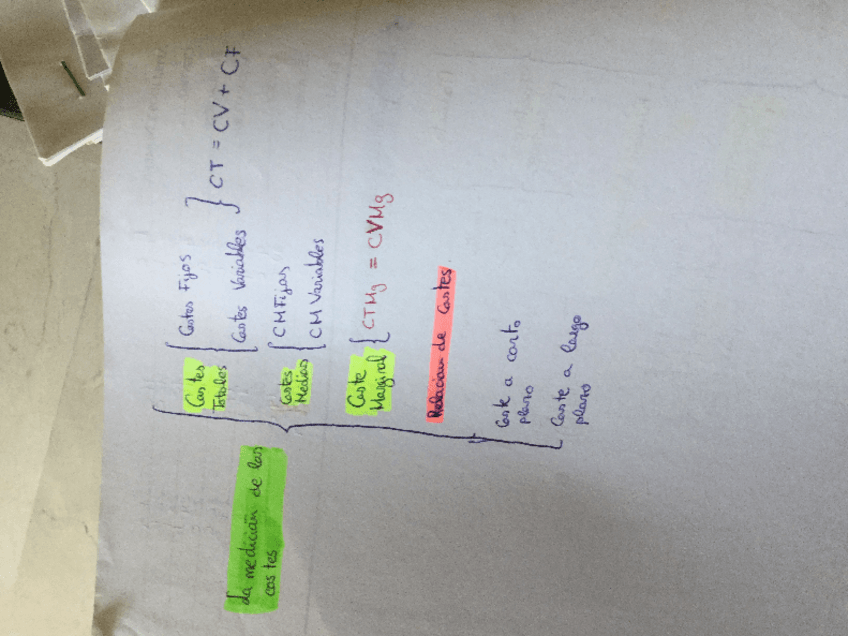 La medición de los
costes
Costes
Totales
Costes Fijos
Costes Variables
CT = CV + CF
Costes
Medios
CMFijos
CMVariables
Coste
Marginal
CTMg = CVMg
Relación de Costes.
Coste a corto
plazo
Coste a largo
plazo